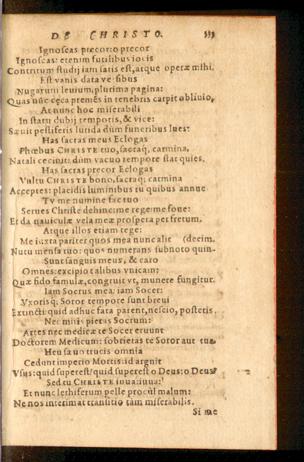 DE CHRISTO.
Ignoscas precor: o precor
Ignoscas: etenim futilibus iocis
Contritum studij iam satis est, atque operæ mihi.
Est vanis data versibus
Nugarum leuium plurima pagina:
Quas nûc cęca premẽs in tenebris carpit obliuio,
At nunc hoc miserabili
In statu dubij temporis, & vice:
Sæuit pestiferis lurida dum funeribus lues:
Has sacras meus Eclogas
Phœbus CHRISTE tuo, sacraq; carmina,
Natali cecinit: dum vacuo tempore stat quies.
Has sacras precor Eclogas
Vultu CHRISTE bono, sacraq; carmina
Acceptes: placidis luminibus tu quibus annue
Tu me numine fac tuo
Serues Christe dehinc: me rege: me foue:
Et da nauiculæ vela meæ prospera per fretum.
Atque illos etiam tege:
Me iuxta pariter quos mea nunc alit (decim.
Nutu mensa tuo: quos numerans subnoto quin-
Sunt sanguis meus, & caro
Omnes: excipio talibus vnicam:
Quæ fido famulæ, congruit vt, munere fungitur.
Iam Socrus mea: iam Socer:
Vxorisq; Soror tempore sunt breui
Extincti: quid adhuc fata parent, nescio, posteris.
Nec minis pietas Socrum:
Artes nec medicæ te Socer eruunt
Doctorem Medicum: sobrietas te Soror aut tua.
Heu sæuo trucis omnia
Cedunt imperio Mortis: id argnit
Vsus: quid superest? quid superest o Deus: o Deus?
Sed tu CHRISTE iuua: iuua:
Et nunc lethiferum pelle procul malum:
Ne nos interimat transitio tam miserabilis.
Si me